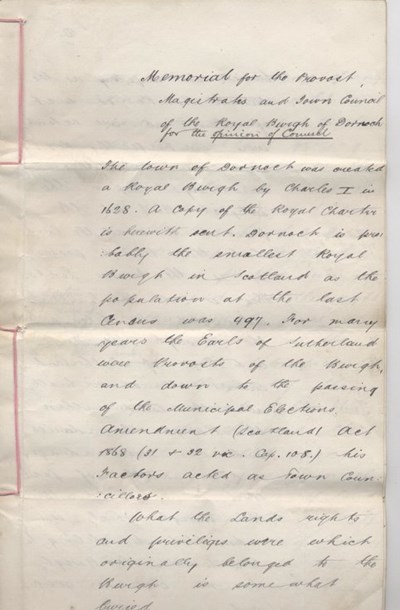 Memorial for the Provost,
Magistrates and Town Council
of the Royal Burgh of Dornoch
for the opinion of Counsel
The town of Dornoch was created
a Royal Burgh by Charles I in
1628. A copy of the Royal Charter
is herewith sent. Dornoch is pro-
:bably the smallest Royal
Burgh in Scotland as the
population at the last
Census was 497. For many
years the Earls of Sutherland
were Provosts of the Burgh,
and down to the passing
of the Municipal Elections
Amendment (Scotland) Act
1868 (31 & 32 vic. Cap. 108.) his
Factors acted as Town Coun-
:cillors.
What the Lands rights
and privileges were which
originally belonged to the
Burgh is some what